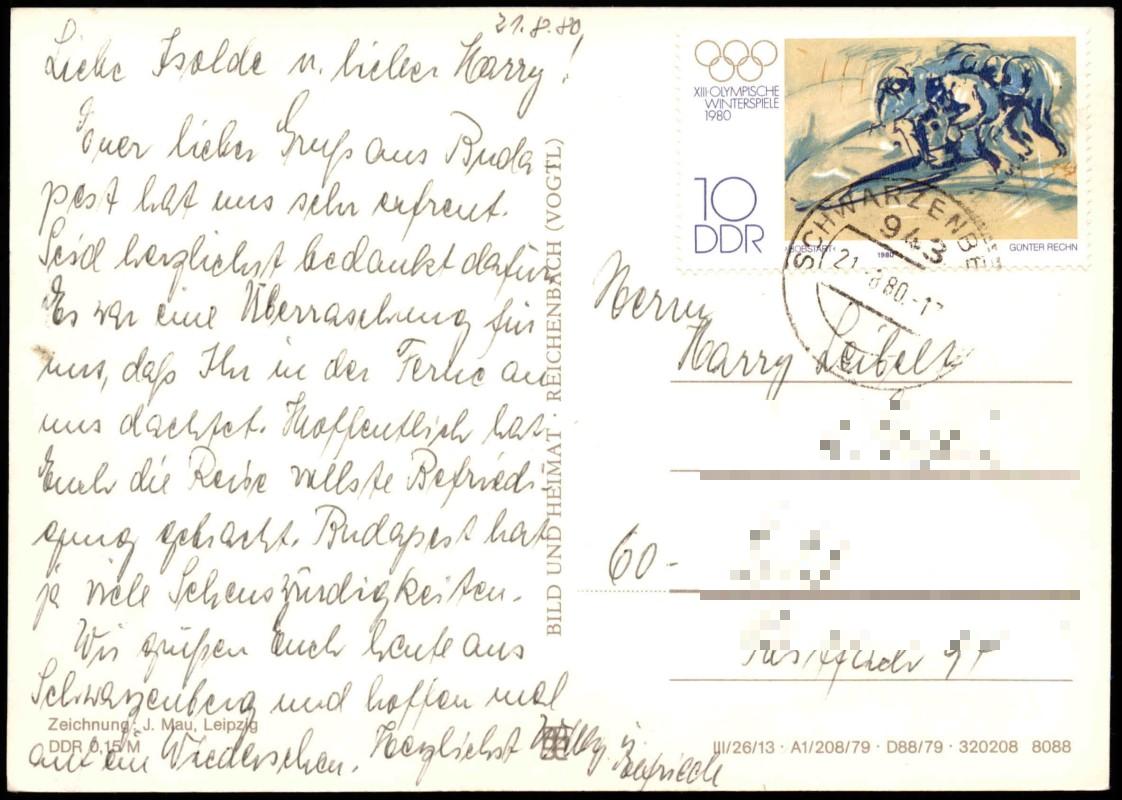 21.8.80,
Liebe Isolde u. lieber Harry!
Euer lieber Gruß aus Buda
pest hat uns sehr erfreut.
Seid herzlichst bedankt dafür.
Es war eine Überraschung für
uns, daß Ihr in der Ferne an
uns dachtet. Hoffentlich hat
Euch die Reise vollste Befriedi-
gung gebracht. Budapest hat
ja viele Sehenswürdigkeiten.
Wir grüßen Euch heute aus
Schwarzenberg und hoffen mal
auf ein Wiedersehen. Herzlichst Willy u.
Zeichnung: J. Mau, Leipzig
DDR 0,15/M
BILD UND HEIMAT · REICHENBACH (VOGTL)
XIII·OLYMPISCHE
WINTERSPIELE
1980
10
DDR
›BOBSTART‹ 1980 GÜNTER RECHN
SCHWARZENBE
943
21.-8.80.-17
Herrn
Harry
60-
III/26/13 · A1/208/79 · D88/79 · 320208 8088